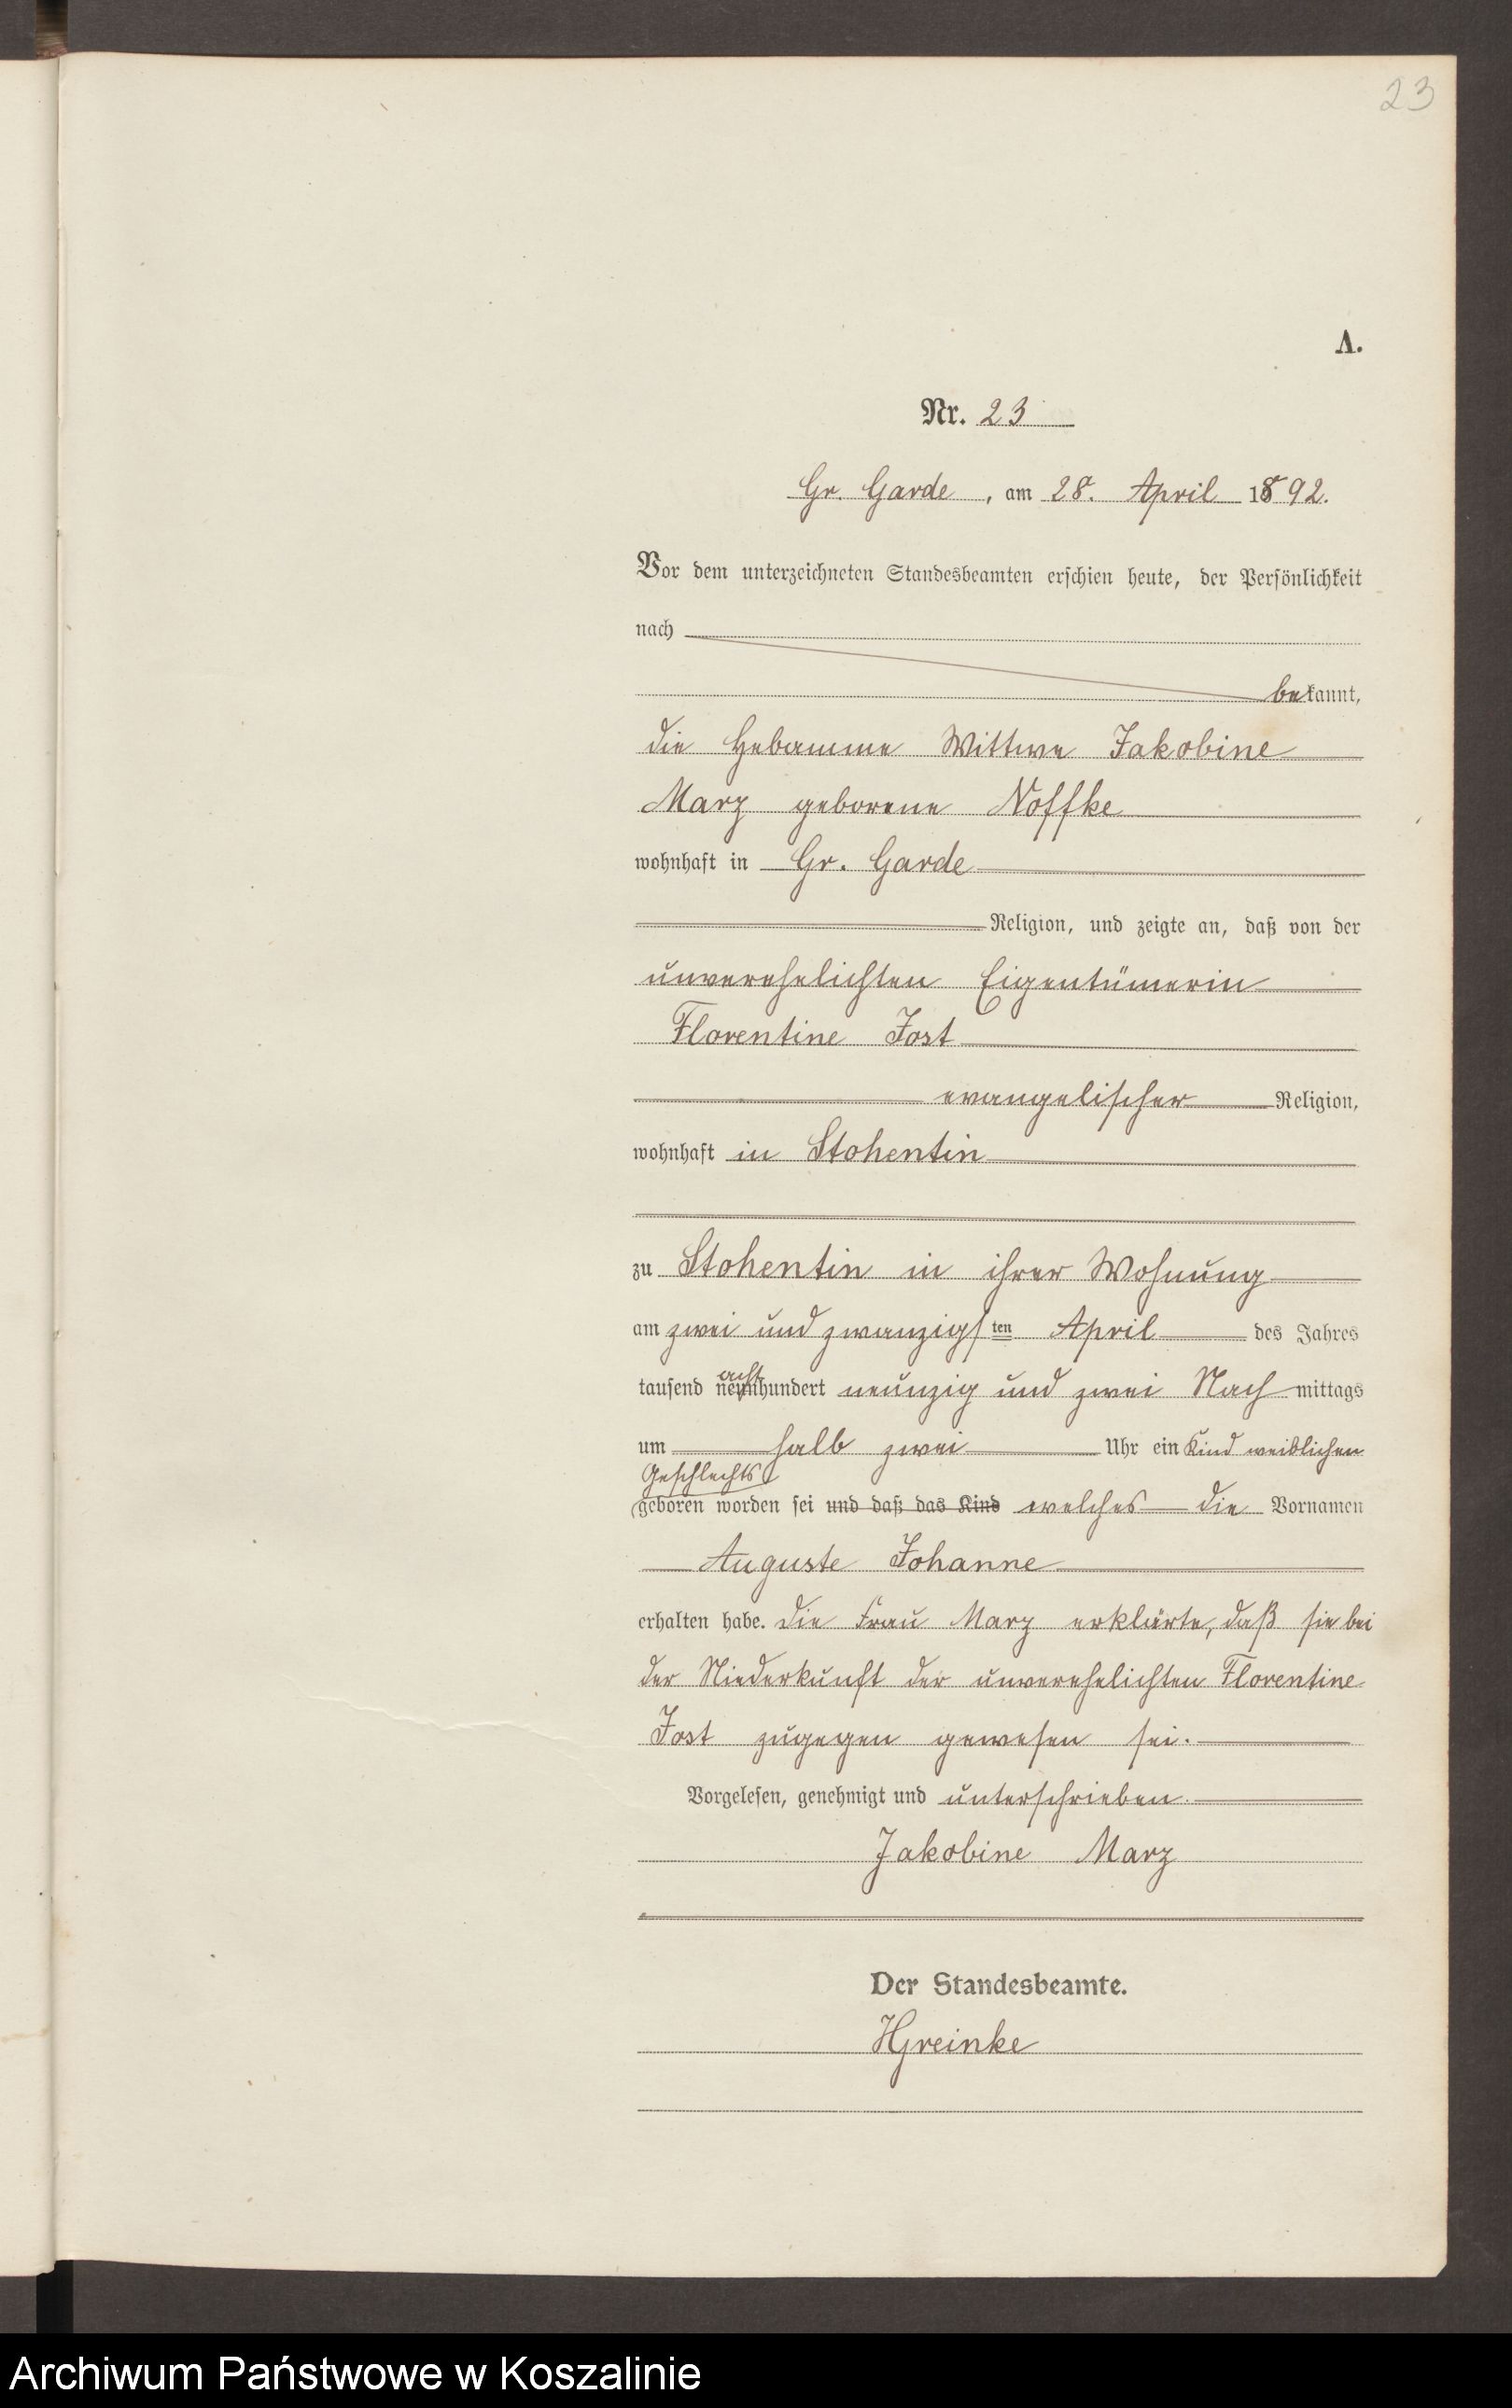 23
A.
Nr. 23
Gr. Garde, am 28. April 1892.
Vor dem unterzeichneten Standesbeamten erschien heute, der Persönlichkeit
nach
bekannt,
die Hebamme Wittwe Jakobine
Marz geborene Noffke
wohnhaft in Gr. Garde
Religion, und zeigte an, daß von der
unverehelichten Eigentümerin
Florentine Jost
evangelischer Religion,
wohnhaft in Stohentin
zu Stohentin in ihrer Wohnung
am zwei und zwanzigsten April des Jahres
acht
tausend neunhundert neunzig und zwei Nachmittags
um halb zwei Uhr ein Kind weiblichen
Geschlechts
geboren worden sei und daß das Kind welches die Vornamen
Auguste Johanne
erhalten habe. Die Frau Marz erklärte, daß sie bei
der Niederkunft der unverehelichten Florentine
Jost zugegen gewesen sei.
Vorgelesen, genehmigt und unterschrieben.
Jakobine Marz
Der Standesbeamte.
HGreinke
Archiwum Państwowe w Koszalinie